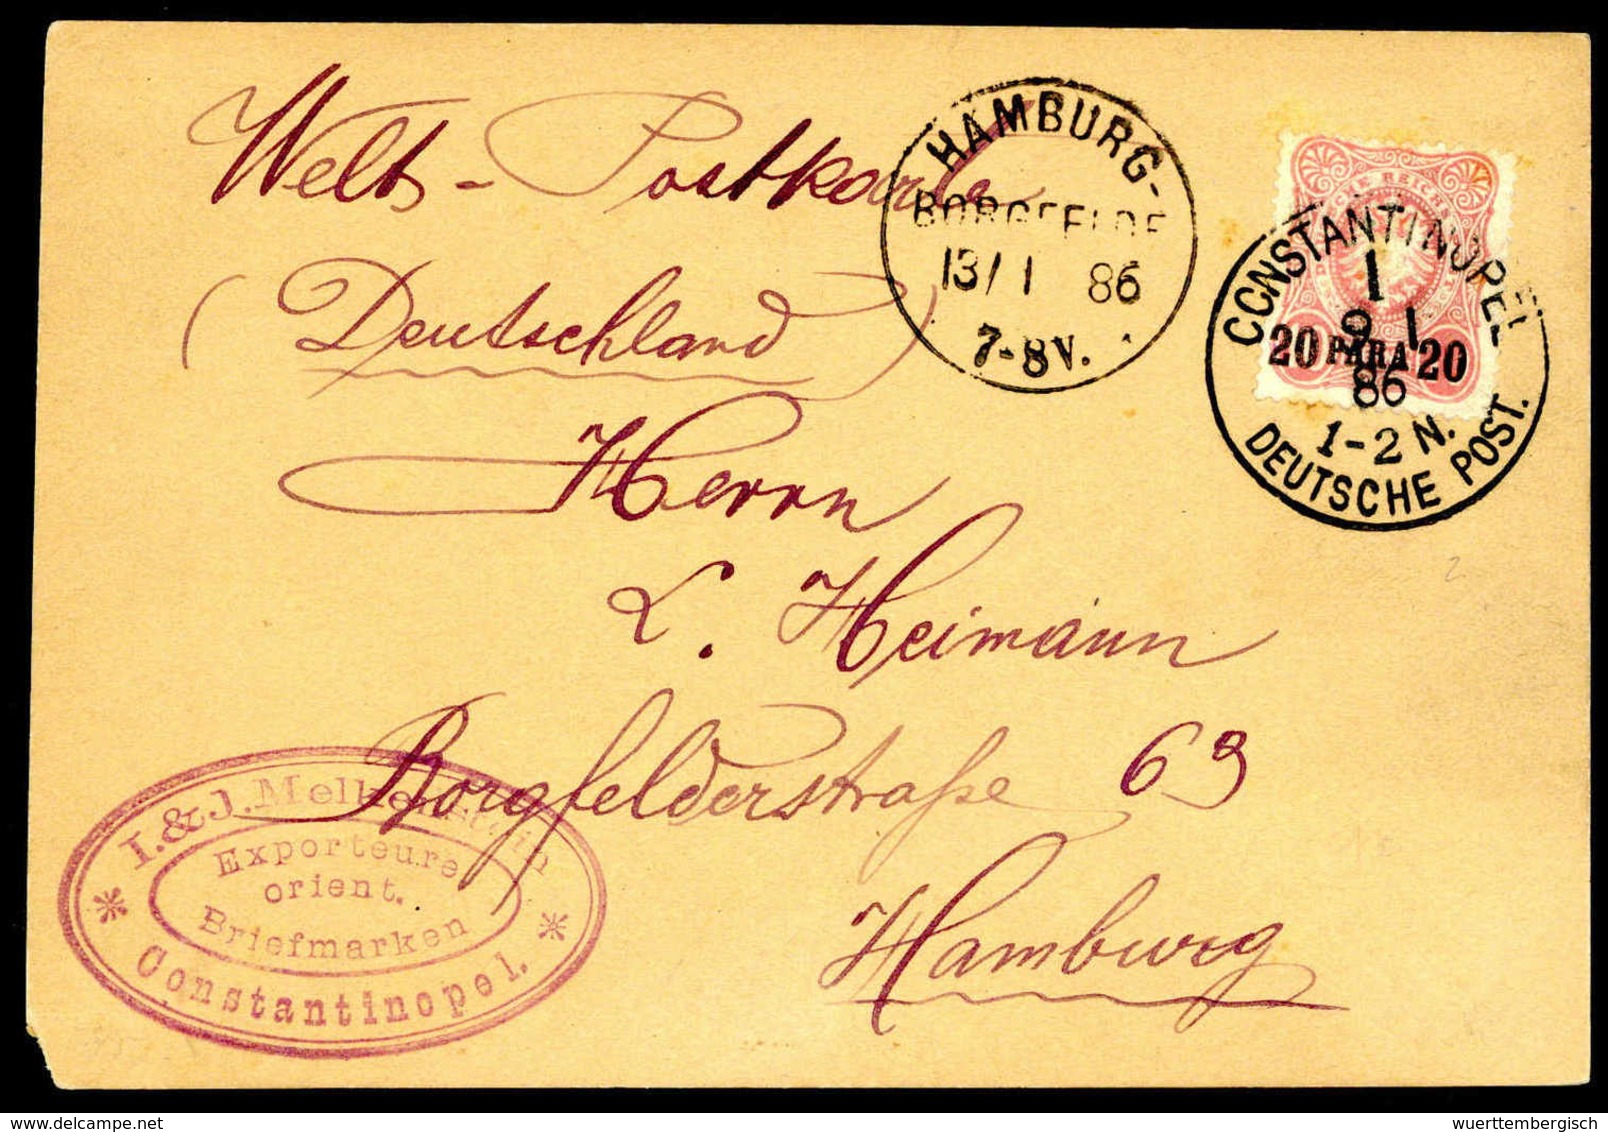 Welt-Postkarte
(Deutschland)
Herrn
L. Heimann
Borgfelderstraße 63
Hamburg
HAMBURG-
BORGFELDE
13/1 86
7-8V.
REICHS
CONSTANTINOPEL
1
9 1
20 PARA 20
86
1-2 N.
DEUTSCHE POST.
I. & J. Melkenstein
Exporteure
orient.
Briefmarken
* Constantinopel. *
2
delcampe.net
wuerttembergisch